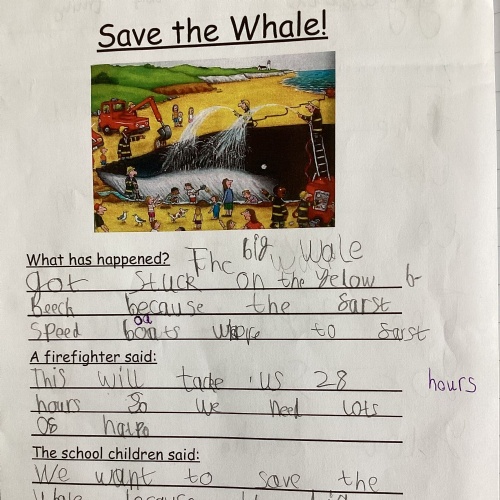 Save the Whale!
What has happened? The big Wale
got stuck on the yelow b-
Beech because the sarst
Speed boats whore to sarst
A firefighter said:
This will tacke us 28 hours
hours So we need lots
Of
The school children said:
We want to save the
Whale because